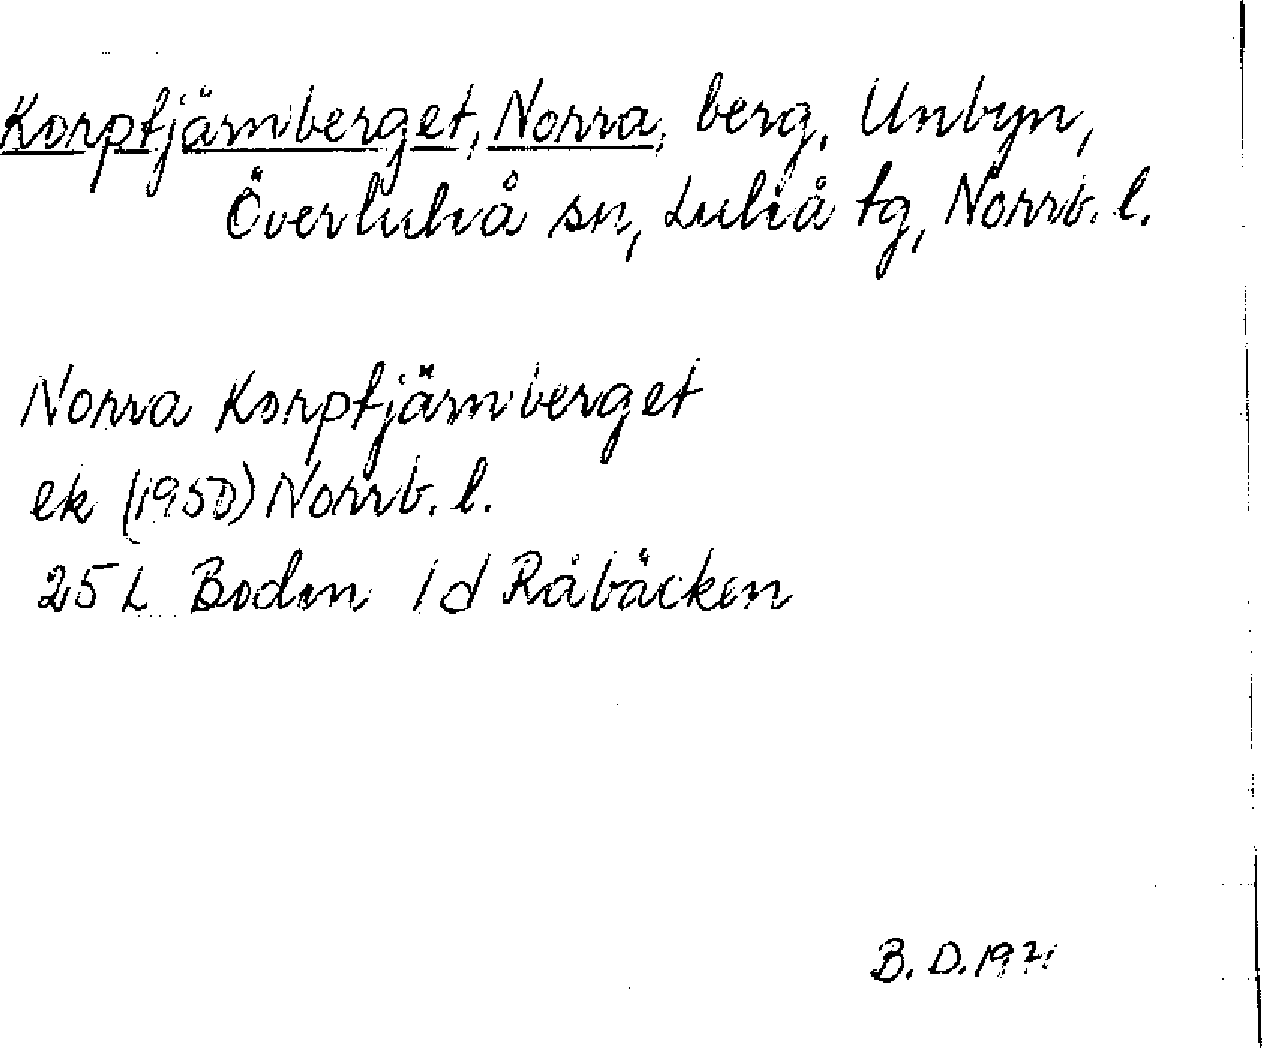 Korptjärnberget, Norra, berg, Unbyn,
Överluleå sn, Luleå tg, Norrb. l.
Norra Korptjärnberget
ek (1950) Norrb. l.
25 L Boden 1d Råbäcken
B. D. 1971